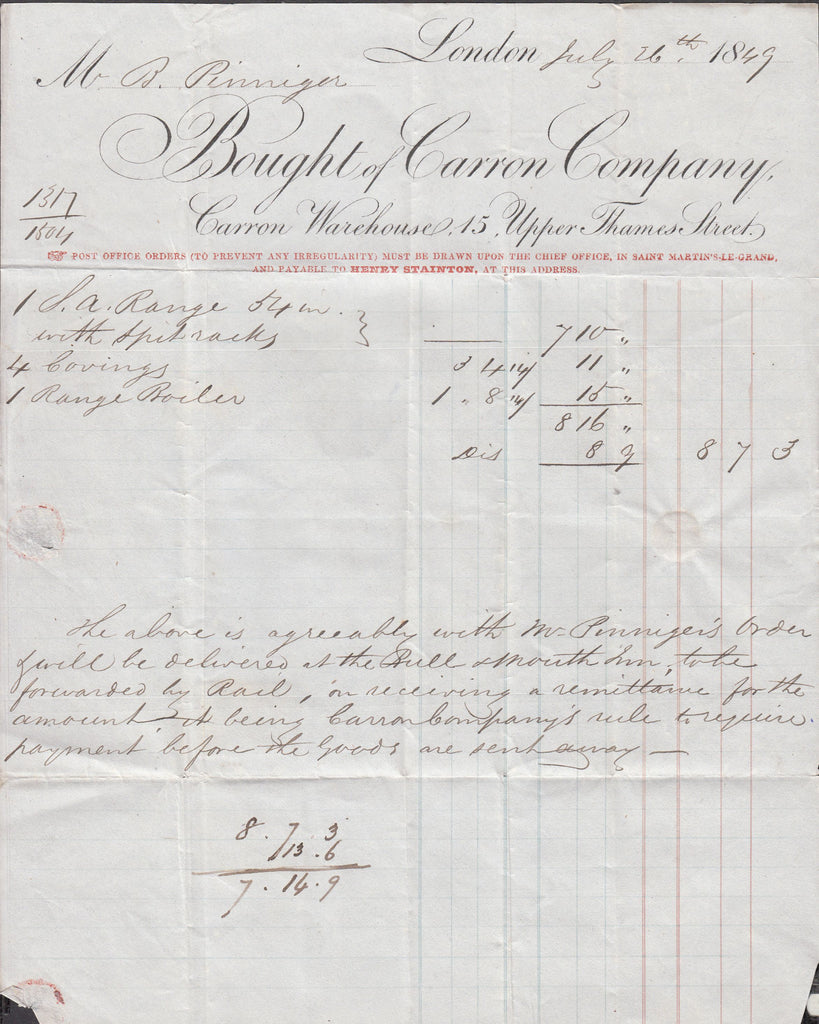 London July 26th. 1849
Mr B. Pinniger
Bought of Carron Company,
1317
1504
Carron Warehouse, 15, Upper Thames Street.
POST OFFICE ORDERS (TO PREVENT ANY IRREGULARITY) MUST BE DRAWN UPON THE CHIEF OFFICE, IN SAINT MARTIN'S-LE-GRAND,
AND PAYABLE TO HENRY STAINTON, AT THIS ADDRESS.
1 S.a. Range 54 in.
with Spit racks } 7 10 "
4 Covings 3 4 14/ 11 "
1 Range Boiler 1 " 8 14/ 15 "
8 16 "
Dis 8 9 8 7 3
The above is agreeably with Mr Pinniger's Order
& will be delivered at the Bull & Mouth Inn, to be
forwarded by Rail, on receiving a remittance for the
amount it being Carron Company's rule to require
payment before the Goods are sent away —
8 . 7 . 3
13 . 6
7 . 14 . 9